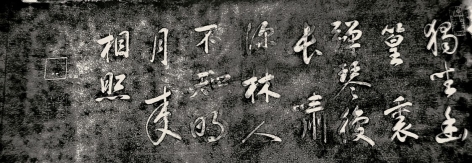 獨坐幽
篁裏
彈琴復
長嘯
深林人
不知明
月來
相照